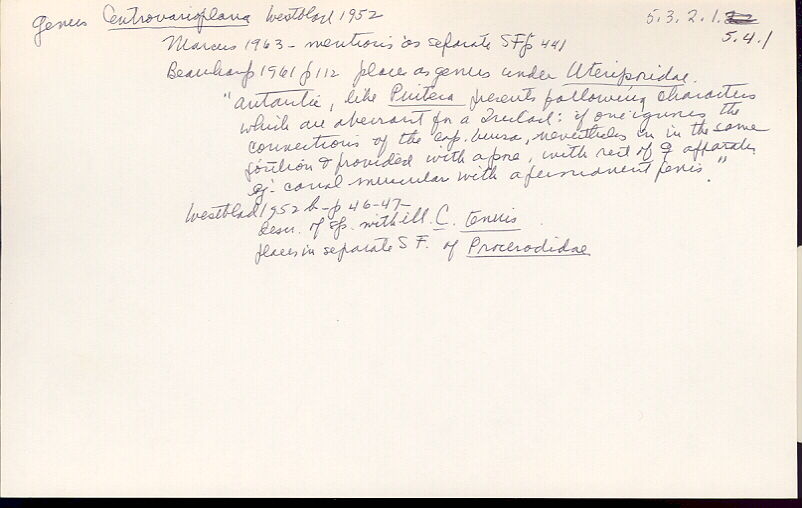 genus Centrovarioplana Westblad 1952 5.3.2.1.
5.4.1
Marcus 1963 - mentions as separate SF p 441
Beauchamp 1961 p 112 places as genus under Uteriporidae.
"antarctic, like Puiteca presents following characters
which are aberrant for a Triclad: if one ignores the
connections of the cop. bursa, nevertheless in in the same
position & provided with a pore, with rest of ♀ apparatus,
ej. canal muscular with a permanent penis."
Westblad 1952 b - p 46-47 -
descr. of sp. with ill. C. tenuis
places in separate S F. of Procerodidae